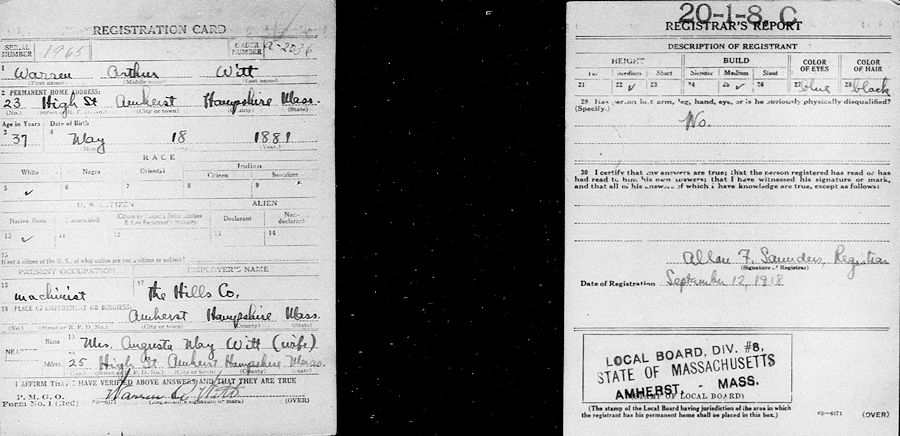 REGISTRATION CARD
SERIAL NUMBER 1965 ORDER NUMBER A-2036
1 Warren Arthur Witt
(First name) (Middle name) (Last name)
2 PERMANENT HOME ADDRESS:
23 High St Amherst Hampshire Mass.
(No.) (Street or R. F. D. No.) (City or town) (County) (State)
Age in Years Date of Birth
3 37 4 May 18 1881
(Year.)
RACE
White Negro Oriental Indian
Citizen Noncitizen
5 ✓ 6 7 8 9
U. S. CITIZEN ALIEN
Native Born Naturalized Citizen by Father's Naturalization Before Registrant's Majority Declarant Non-declarant
10 ✓ 11 12 13 14
15
If not a citizen of the U. S., of what nation are you a citizen or subject?
PRESENT OCCUPATION EMPLOYER'S NAME
16 machinist 17 The Hills Co.
18 PLACE OF EMPLOYMENT OR BUSINESS:
Amherst Hampshire Mass.
(No.) (Street or R. F. D. No.) (City or town) (County) (State)
NEAREST Name 19 Mrs. Augusta May Witt (wife)
Address 20 25 High St Amherst Hampshire Mass.
(No.) (Street or R. F. D. No.) (City or town) (County) (State)
I AFFIRM THAT I HAVE VERIFIED ABOVE ANSWERS AND THAT THEY ARE TRUE
P. M. G. O.
Form No. 1 (Red) Warren A. Witt
(Registrant's signature or mark) (OVER)
20-1-8. C
REGISTRAR'S REPORT
DESCRIPTION OF REGISTRANT
HEIGHT BUILD COLOR OF EYES COLOR OF HAIR
Tall Medium Short Slender Medium Stout
21 22 ✓ 23 24 25 ✓ 26 27 blue 28 black
29 Has person lost arm, leg, hand, eye, or is he obviously physically disqualified?
(Specify.)
No.
30 I certify that my answers are true; that the person registered has read or has
had read to him his own answers; that I have witnessed his signature or mark,
and that all of his answers of which I have knowledge are true, except as follows:
Allan F. Saunders, Registrar
(Signature of Registrar)
Date of Registration September 12, 1918
LOCAL BOARD, DIV. #8,
STATE OF MASSACHUSETTS
AMHERST, - MASS.
(STAMP OF LOCAL BOARD)
(The stamp of the Local Board having jurisdiction of the area in which
the registrant has his permanent home shall be placed in this box.)
63-6171 (OVER)